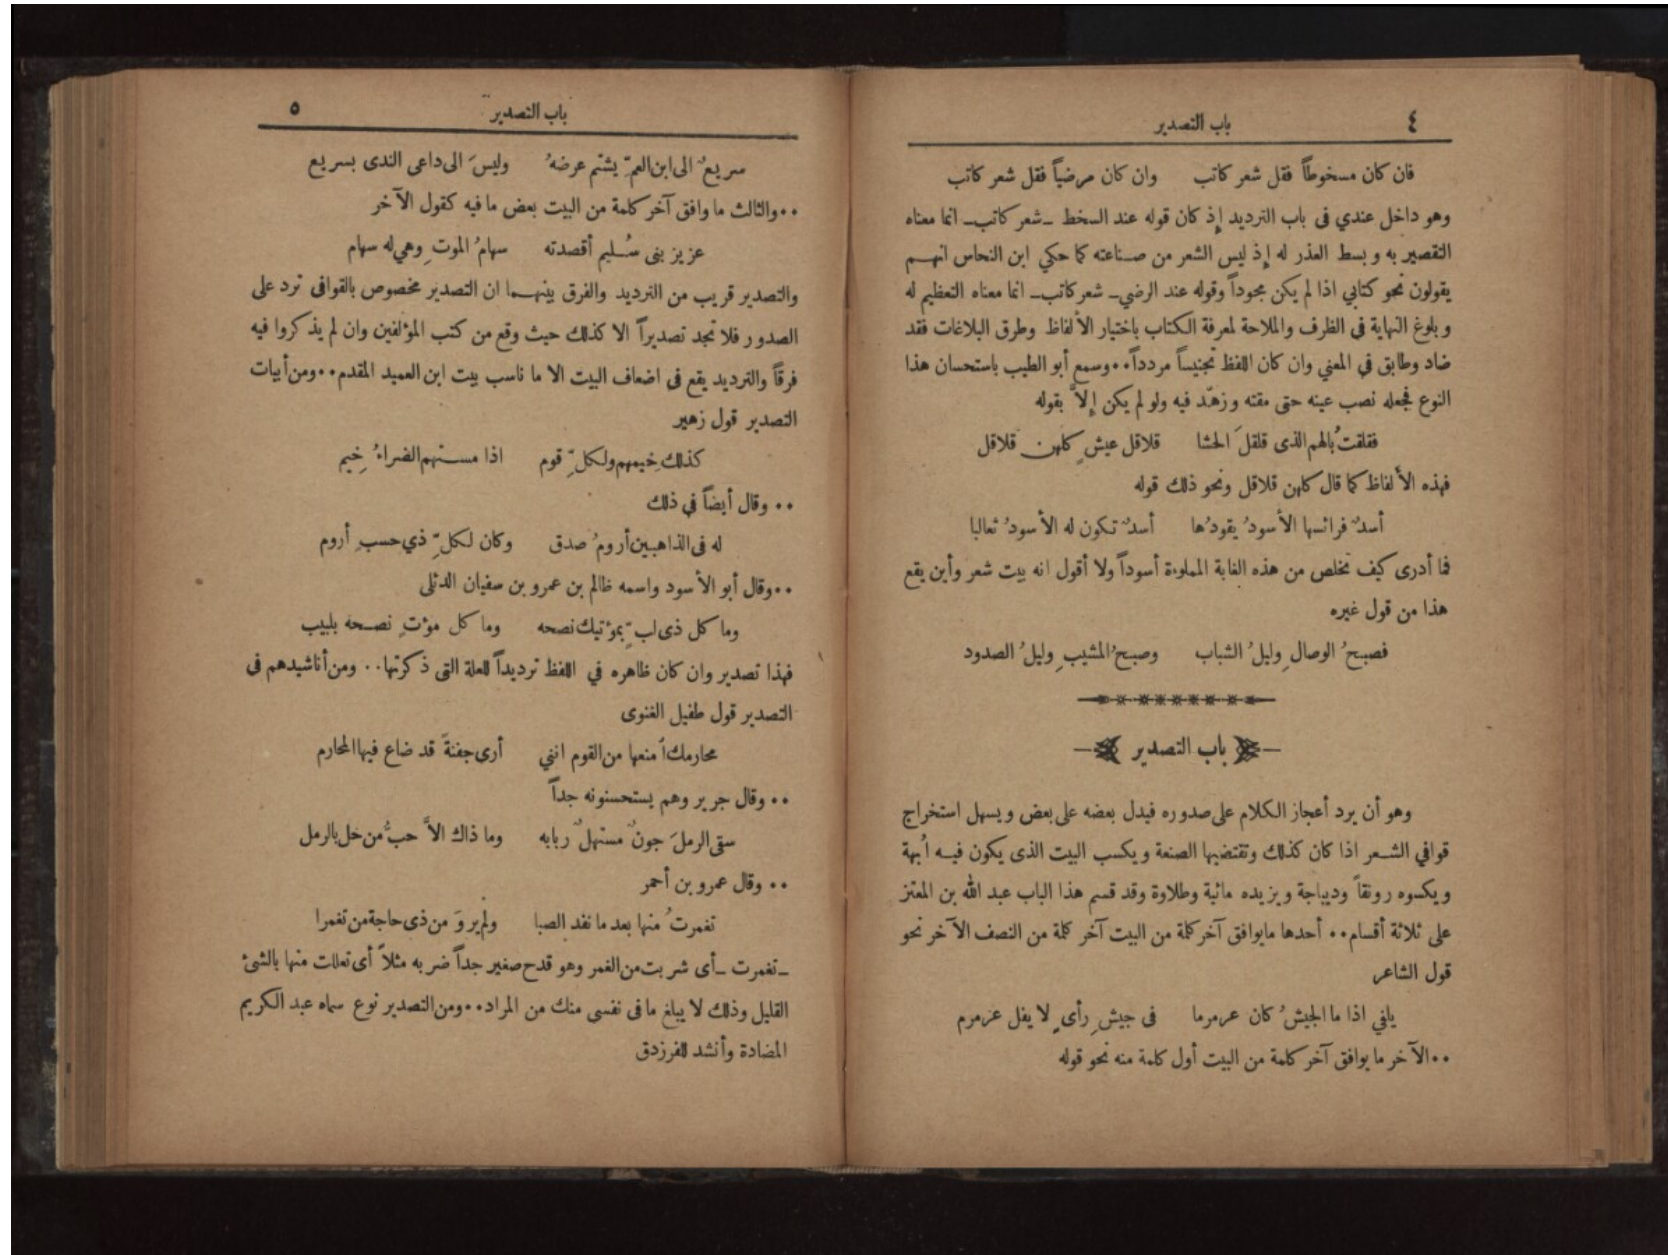 باب التصدير ٤
فان كان مسخوطاً فقل شعر كاتب وان كان مرضياً فقل شعر كاتب
وهو داخل عندي فى باب الترديد إِذ كان قوله عند السخط ـ شعر كاتب ـ انما معناه
التقصير به وبسط العذر له إِذ ليس الشعر من صناعته كما حكي ابن النحاس انهم
يقولون نحو كتابي اذا لم يكن مجوداً وقوله عند الرضي ـ شعر كاتب ـ انما معناه التعظيم له
وبلوغ النهاية فى الظرف والملاحة لمعرفة الكتاب باختيار الألفاظ وطرق البلاغات فقد
ضاد وطابق في المعني وان كان اللفظ تجنيساً مردداً ٠٠ وسمع أبو الطيب باستحسان هذا
النوع فجعله نصب عينه حتى مقته وزهّد فيه ولو لم يكن إِلاَّ بقوله
فقلقتُ بالهم الذى قلقلَ الحشا قلاقل عيشٍ كلهن قلاقل
فهذه الألفاظ كما قال كلهن قلاقل ونحو ذلك قوله
أسدٌ فرائسها الأسودُ يقودُها أسدٌ تكون له الأسودُ ثعالبا
فما أدرى كيف تخلص من هذه الغابة المملوءة أسوداً ولا أقول انه بيت شعر وأين يقع
هذا من قول غيره
فصبحُ الوصالِ وليلُ الشباب وصبحُ المشيبِ وليلُ الصدود
باب التصدير
وهو أن يرد أعجاز الكلام على صدوره فيدل بعضه على بعض ويسهل استخراج
قوافي الشعر اذا كان كذلك وتقتضيها الصنعة ويكسب البيت الذى يكون فيه أبهة
ويكسوه رونقاً وديباجة ويزيده مائية وطلاوة وقد قسم هذا الباب عبد الله بن المعتز
على ثلاثة أقسام ٠٠ أحدها مايوافق آخر كلمة من البيت آخر كلمة من النصف الآخر نحو
قول الشاعر
يلفي اذا ما الجيشُ كان عرمرما فى جيشِ رأىٍ لا يفل عرمرم
٠٠ الآخر ما يوافق آخر كلمة من البيت أول كلمة منه نحو قوله
باب التصدير ٥
سريعٌ الى ابن العمّ يشتم عرضهُ وليسَ الى داعى الندى بسريع
٠٠ والثالث ما وافق آخر كلمة من البيت بعض ما فيه كقول الآخر
عزيز بنى سُليم أقصدته سهامُ الموتِ وهي له سهام
والتصدير قريب من الترديد والفرق بينهما ان التصدير مخصوص بالقوافى ترد على
الصدور فلا تجد تصديراً الا كذلك حيث وقع من كتب المؤلفين وان لم يذكروا فيه
فرقاً والترديد يقع فى اضعاف البيت الا ما ناسب بيت ابن العميد المقدم ٠٠ ومن أبيات
التصدير قول زهير
كذلك خِيمهم ولكلِّ قوم اذا مستهم الضراءُ خِيم
٠٠ وقال أيضاً في ذلك
له فى الذاهبين أرومُ صدق وكان لكلِّ ذي حسبٍ أروم
٠٠ وقال أبو الأسود واسمه ظالم بن عمرو بن سفيان الدئلى
وما كل ذى لبٍّ بمؤتيك نصحه وما كل مؤتٍ نصحه بلبيب
فهذا تصدير وان كان ظاهره في اللفظ ترديداً للعلة التى ذكرتها ٠٠ ومن أناشيدهم فى
التصدير قول طفيل الغنوى
محارمك أمنعها من القوم انني أرى جفنةً قد ضاع فيها المحارم
٠٠ وقال جرير وهم يستحسنونه جداً
سقى الرملَ جونٌ مستهلٌ ربابه وما ذاك الاَّ حبُّ من حل بالرمل
٠٠ وقال عمرو بن أحمر
تغمرتُ منها بعد ما نفد الصبا ولم يروَ من ذى حاجة من تغمرا
ـ تغمرت ـ أى شربت من الغمر وهو قدح صغير جداً ضربه مثلاً أى تعللت منها بالشئ
القليل وذلك لا يبلغ ما فى نفسى منك من المراد ٠٠ ومن التصدير نوع سماه عبد الكريم
المضادة وأنشد للفرزدق